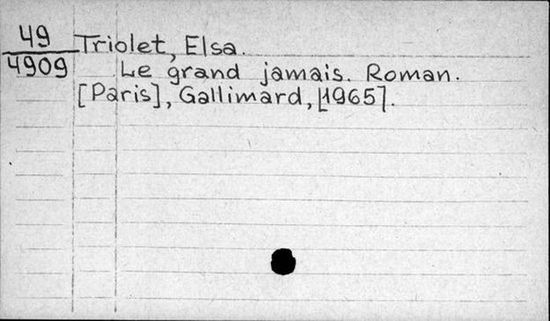 49 Triolet, Elsa.
4909 Le grand jamais. Roman.
[Paris], Gallimard, [1965].